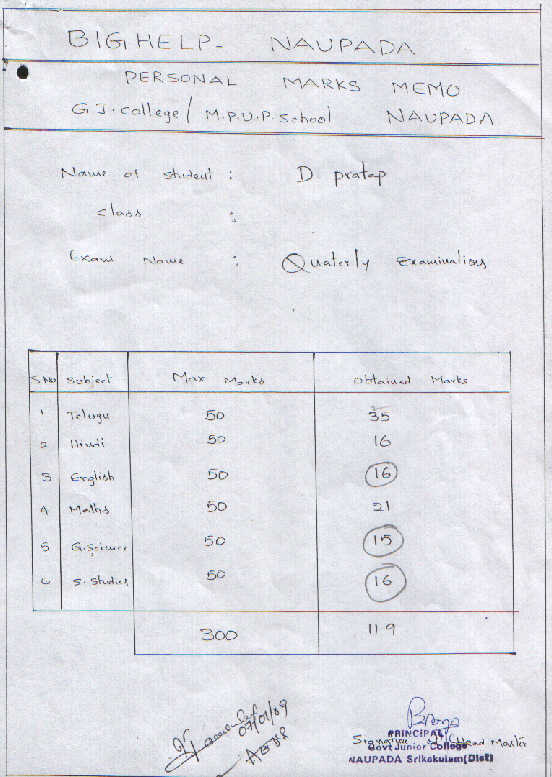 BIGHELP- NAUPADA
PERSONAL MARKS MEMO
G.J.college/ M.P.U.P.School NAUPADA
Name of student : D pratap
class :
Exam Name : Quaterly Examinations
S.No Subject Max Marks Obtained Marks
1 Telugu 50 35
2 Hindi 50 16
3 English 50 16
4 Maths 50 21
5 G.Science 50 15
6 S.Studies 50 16
300 119
07/01/09
PRINCIPAL
Head Master
Govt Junior College
NAUPADA Srikakulam(Dist)